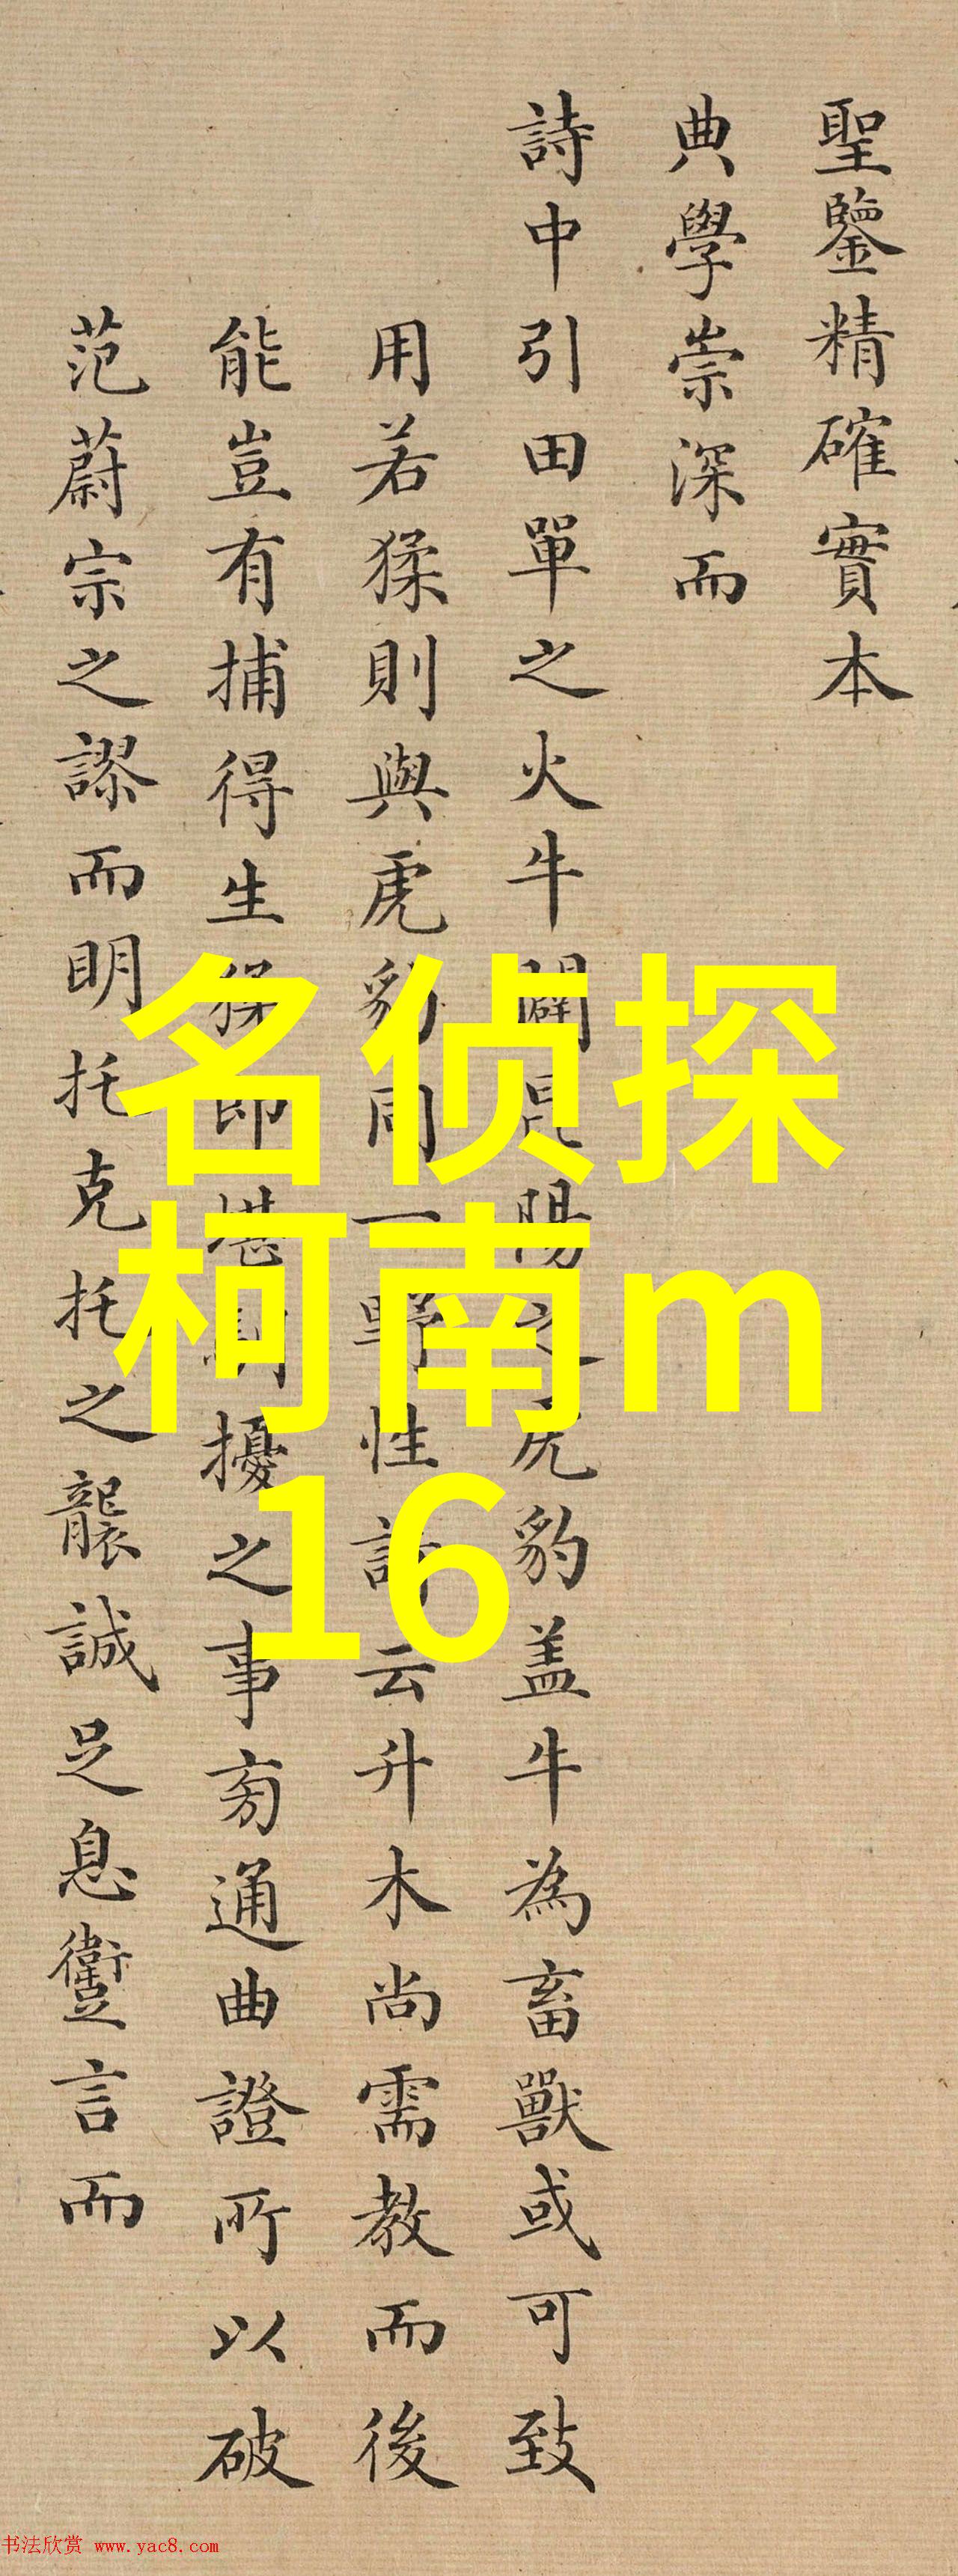 聖鑒精確實本
典學崇深而
詩中引田單之火牛闢昆陽之虎豹盖牛為畜獸或可致
用若猱則與虎豹同一野性詩云升木尚需教而後
能豈有捕得生猱即堪制擾之事旁通曲證所以破
范蔚宗之謬而明托克托之襲誠足息讆言而
名侦探
柯南m
16
书法欣赏 www.yac8.com